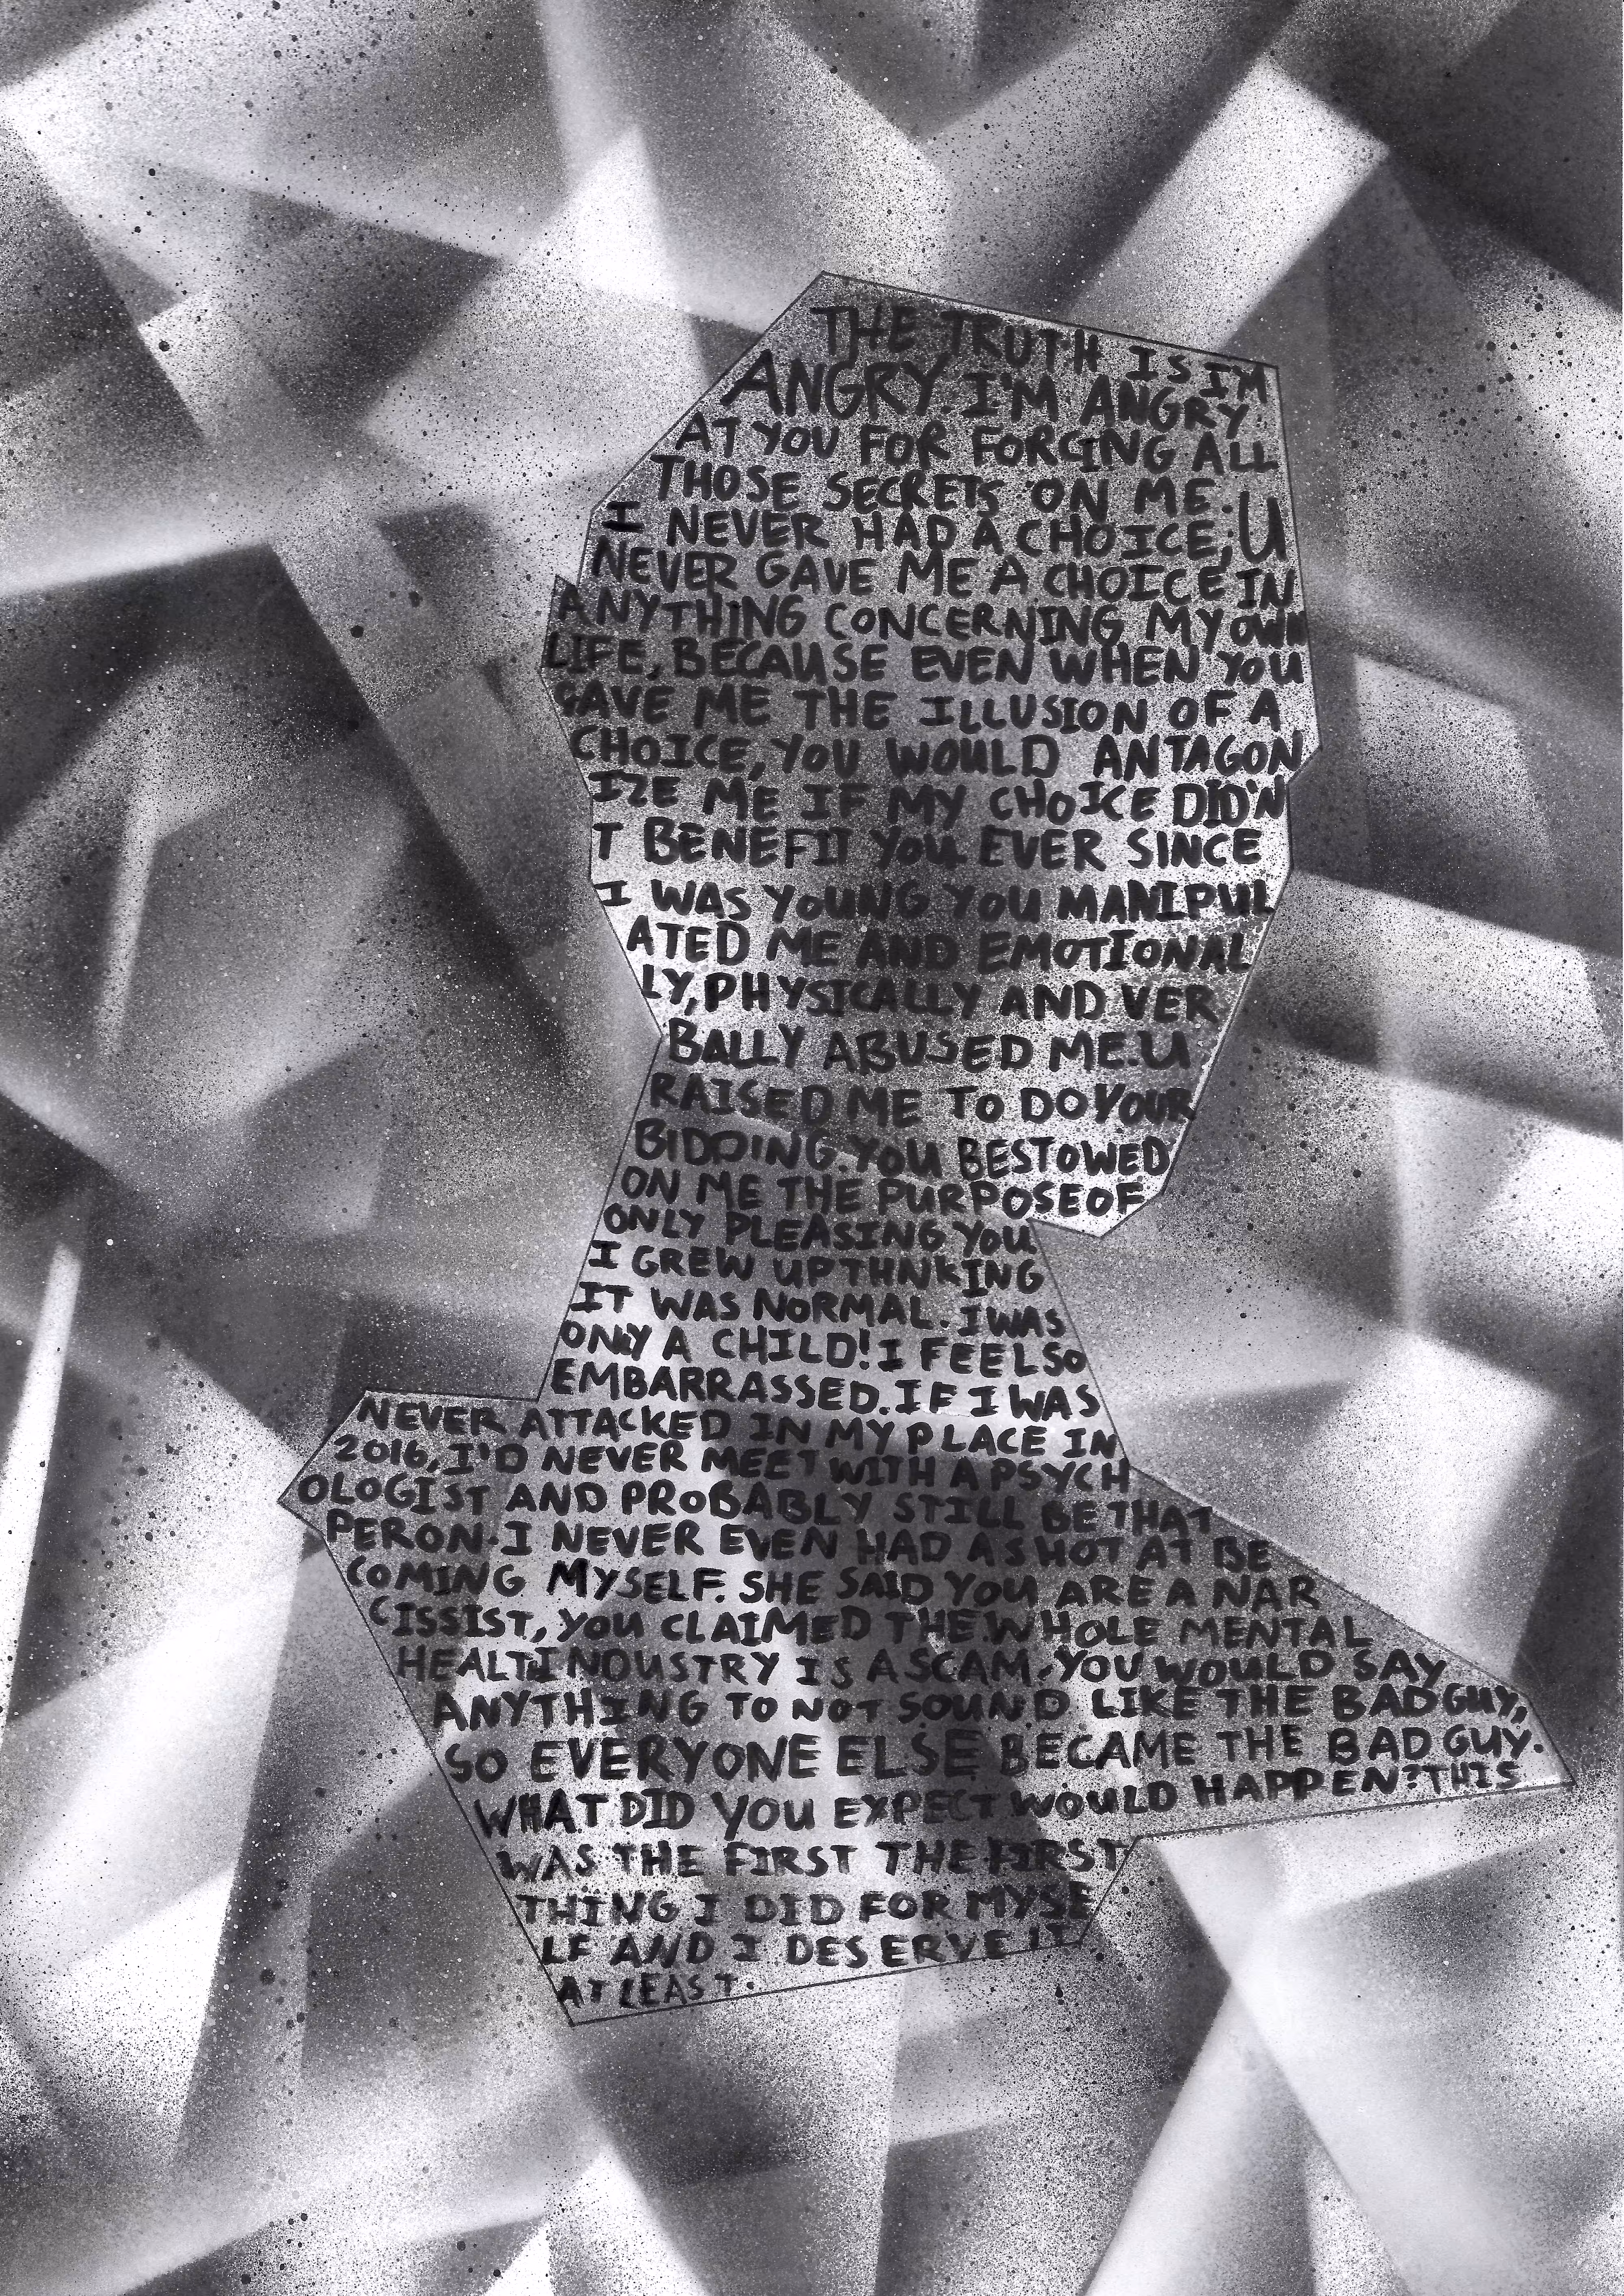 THE TRUTH IS I'M
ANGRY. I'M ANGRY
AT YOU FOR FORCING ALL
THOSE SECRETS ON ME.
I NEVER HAD A CHOICE; U
NEVER GAVE ME A CHOICE IN
ANYTHING CONCERNING MY OWN
LIFE, BECAUSE EVEN WHEN YOU
GAVE ME THE ILLUSION OF A
CHOICE, YOU WOULD ANTAGON
IZE ME IF MY CHOICE DID'N
T BENEFIT YOU. EVER SINCE
I WAS YOUNG YOU MANIPUL
ATED ME AND EMOTIONAL
LY, PHYSICALLY AND VER
BALLY ABUSED ME. U
RAISED ME TO DO YOUR
BIDDING. YOU BESTOWED
ON ME THE PURPOSE OF
ONLY PLEASING YOU
I GREW UP THNKING
IT WAS NORMAL. I WAS
ONLY A CHILD! I FEEL SO
EMBARRASSED. IF I WAS
NEVER ATTACKED IN MY PLACE IN
2016, I'D NEVER MEET WITH A PSYCH
OLOGIST AND PROBABLY STILL BE THAT
PERON. I NEVER EVEN HAD A SHOT AT BE
COMING MYSELF. SHE SAID YOU ARE A NAR
CISSIST, YOU CLAIMED THE WHOLE MENTAL
HEALTH INDUSTRY IS A SCAM. YOU WOULD SAY
ANYTHING TO NOT SOUND LIKE THE BAD GUY,
SO EVERYONE ELSE BECAME THE BAD GUY.
WHAT DID YOU EXPECT WOULD HAPPEN? THIS
WAS THE FIRST THE FIRST
THING I DID FOR MYSE
LF AND I DESERVE IT
AT LEAST.